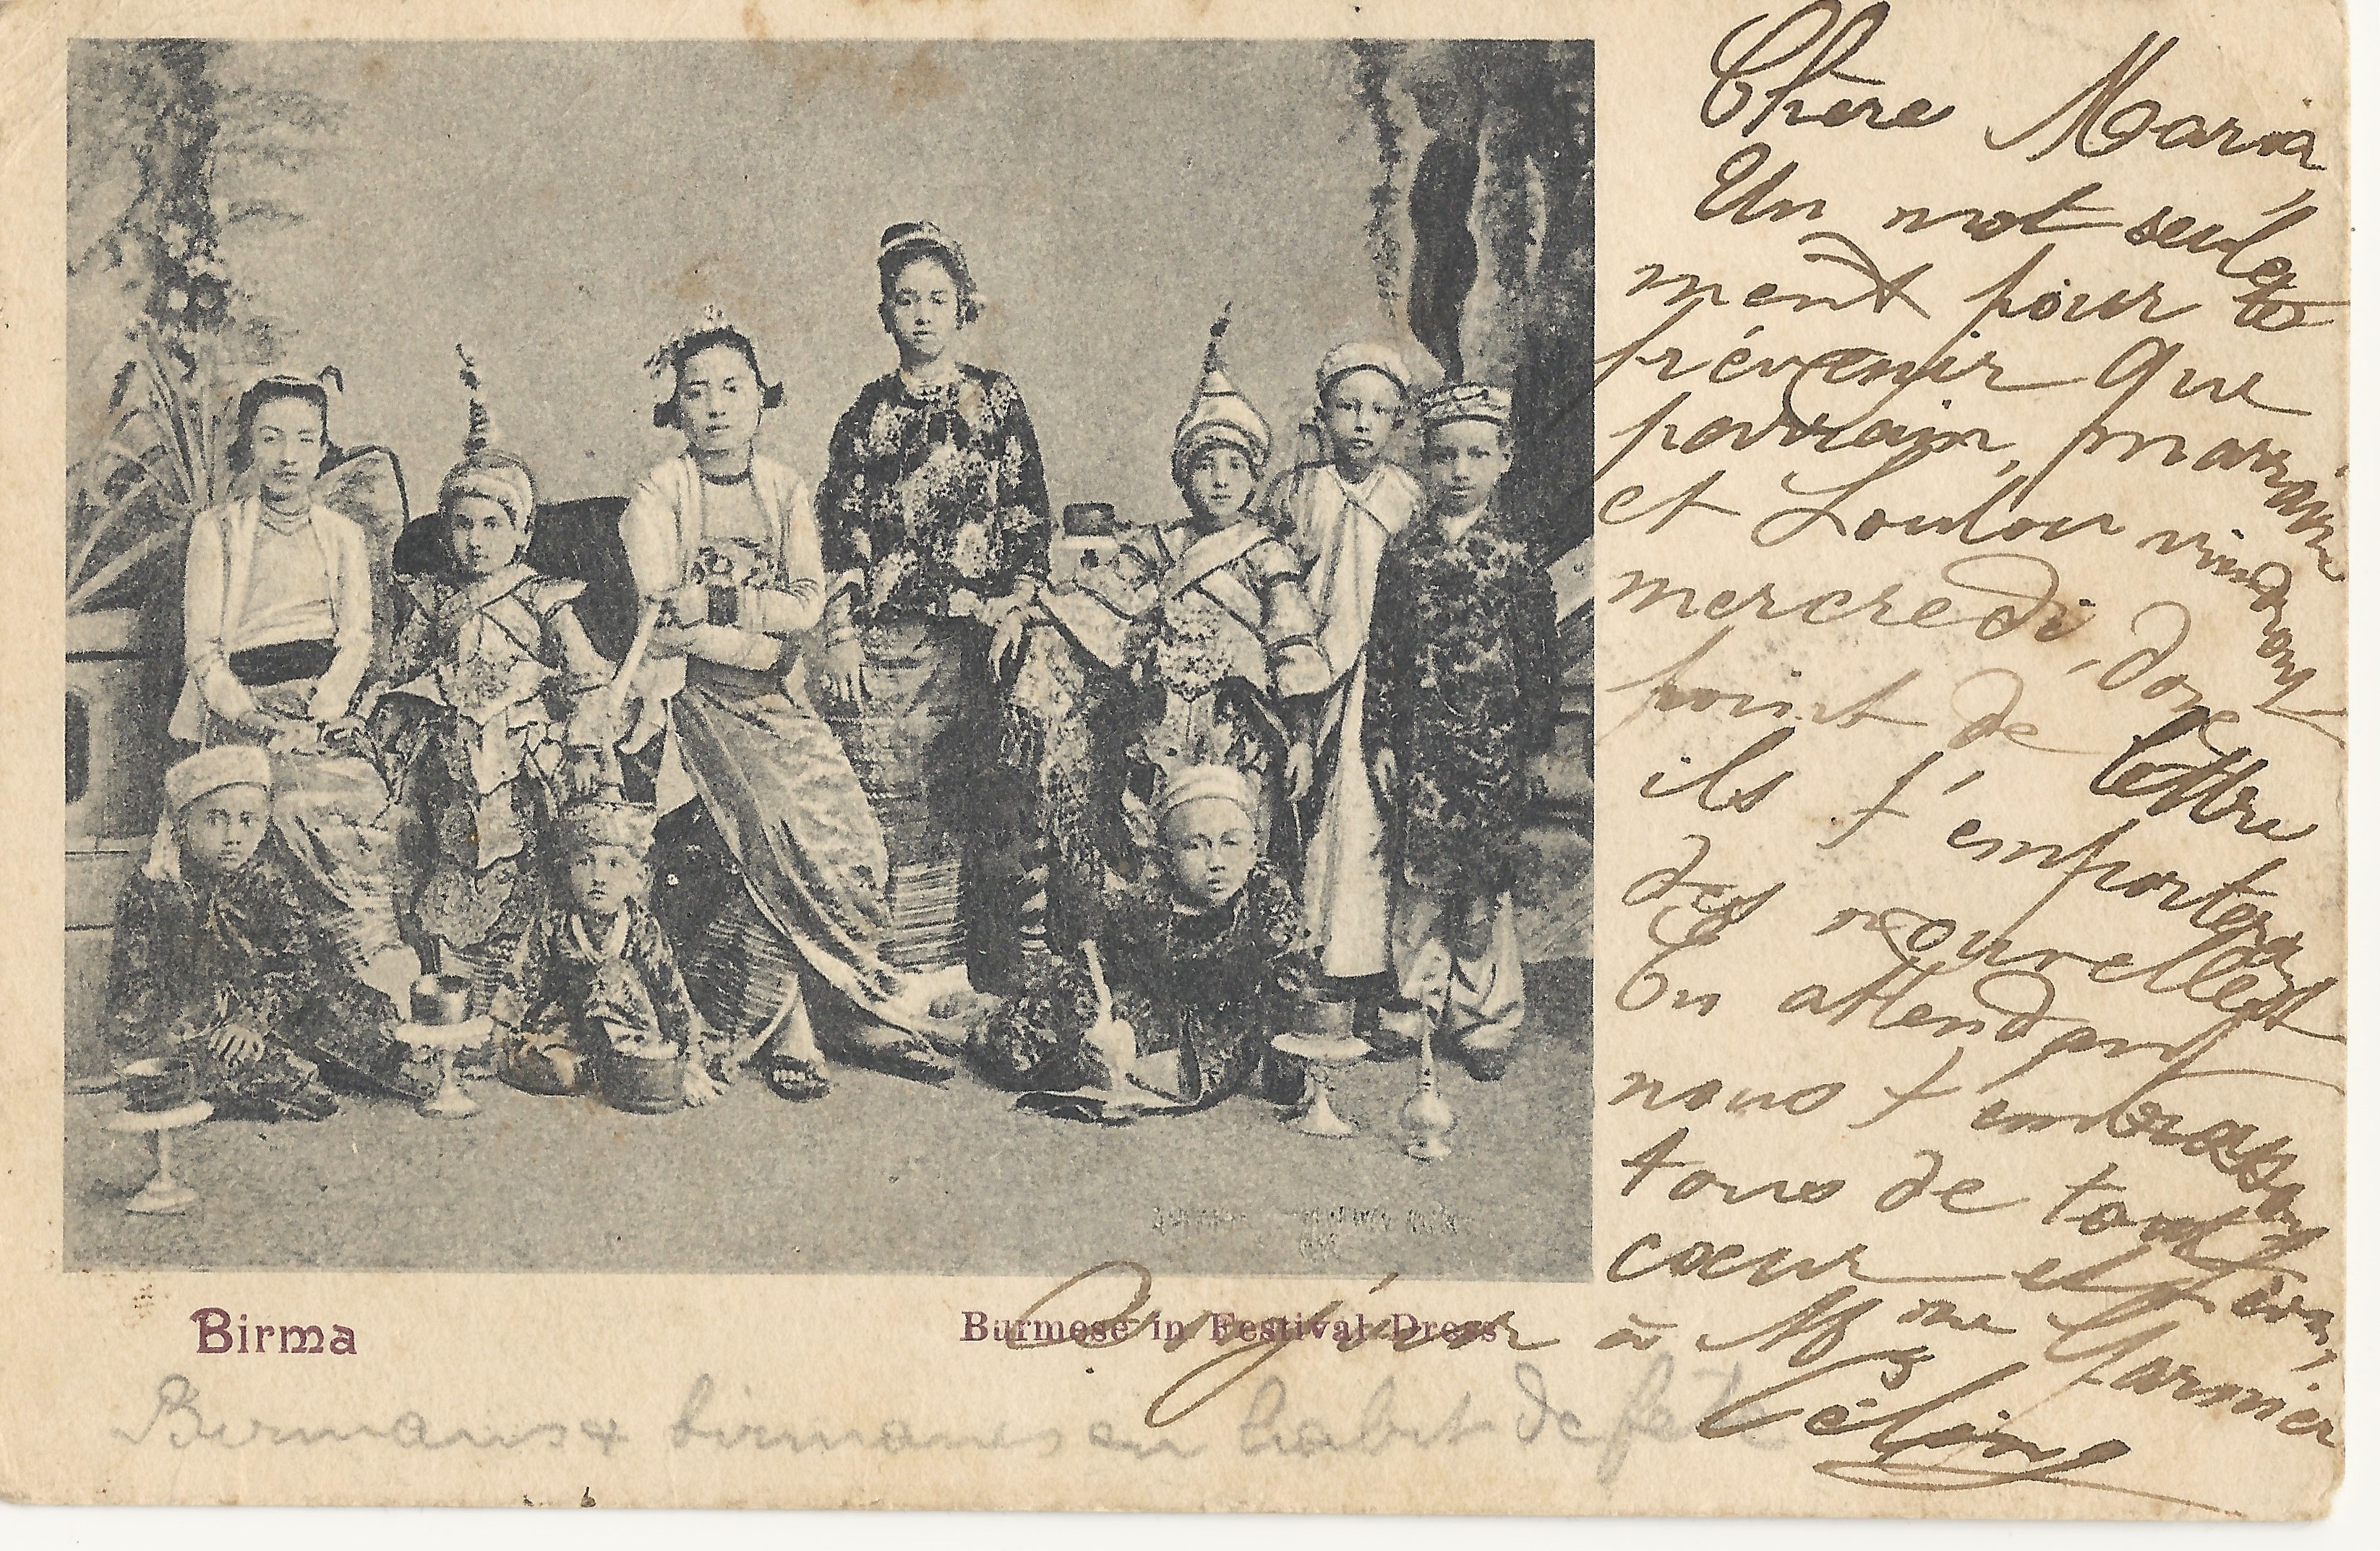 Chère Maria,
Un mot seule
ment pour te
prévenir que
parrain, marraine
et Loulou viendront
mercredi, donc
point de lettre
ils t'emporteront
des nouvelles
En attendant
nous t'embrassons
tous de tout
cœur et bien
à Mme Garnier
Céline
Birma
Burmese in Festival Dress
Birmans & birmanes en habit de fête